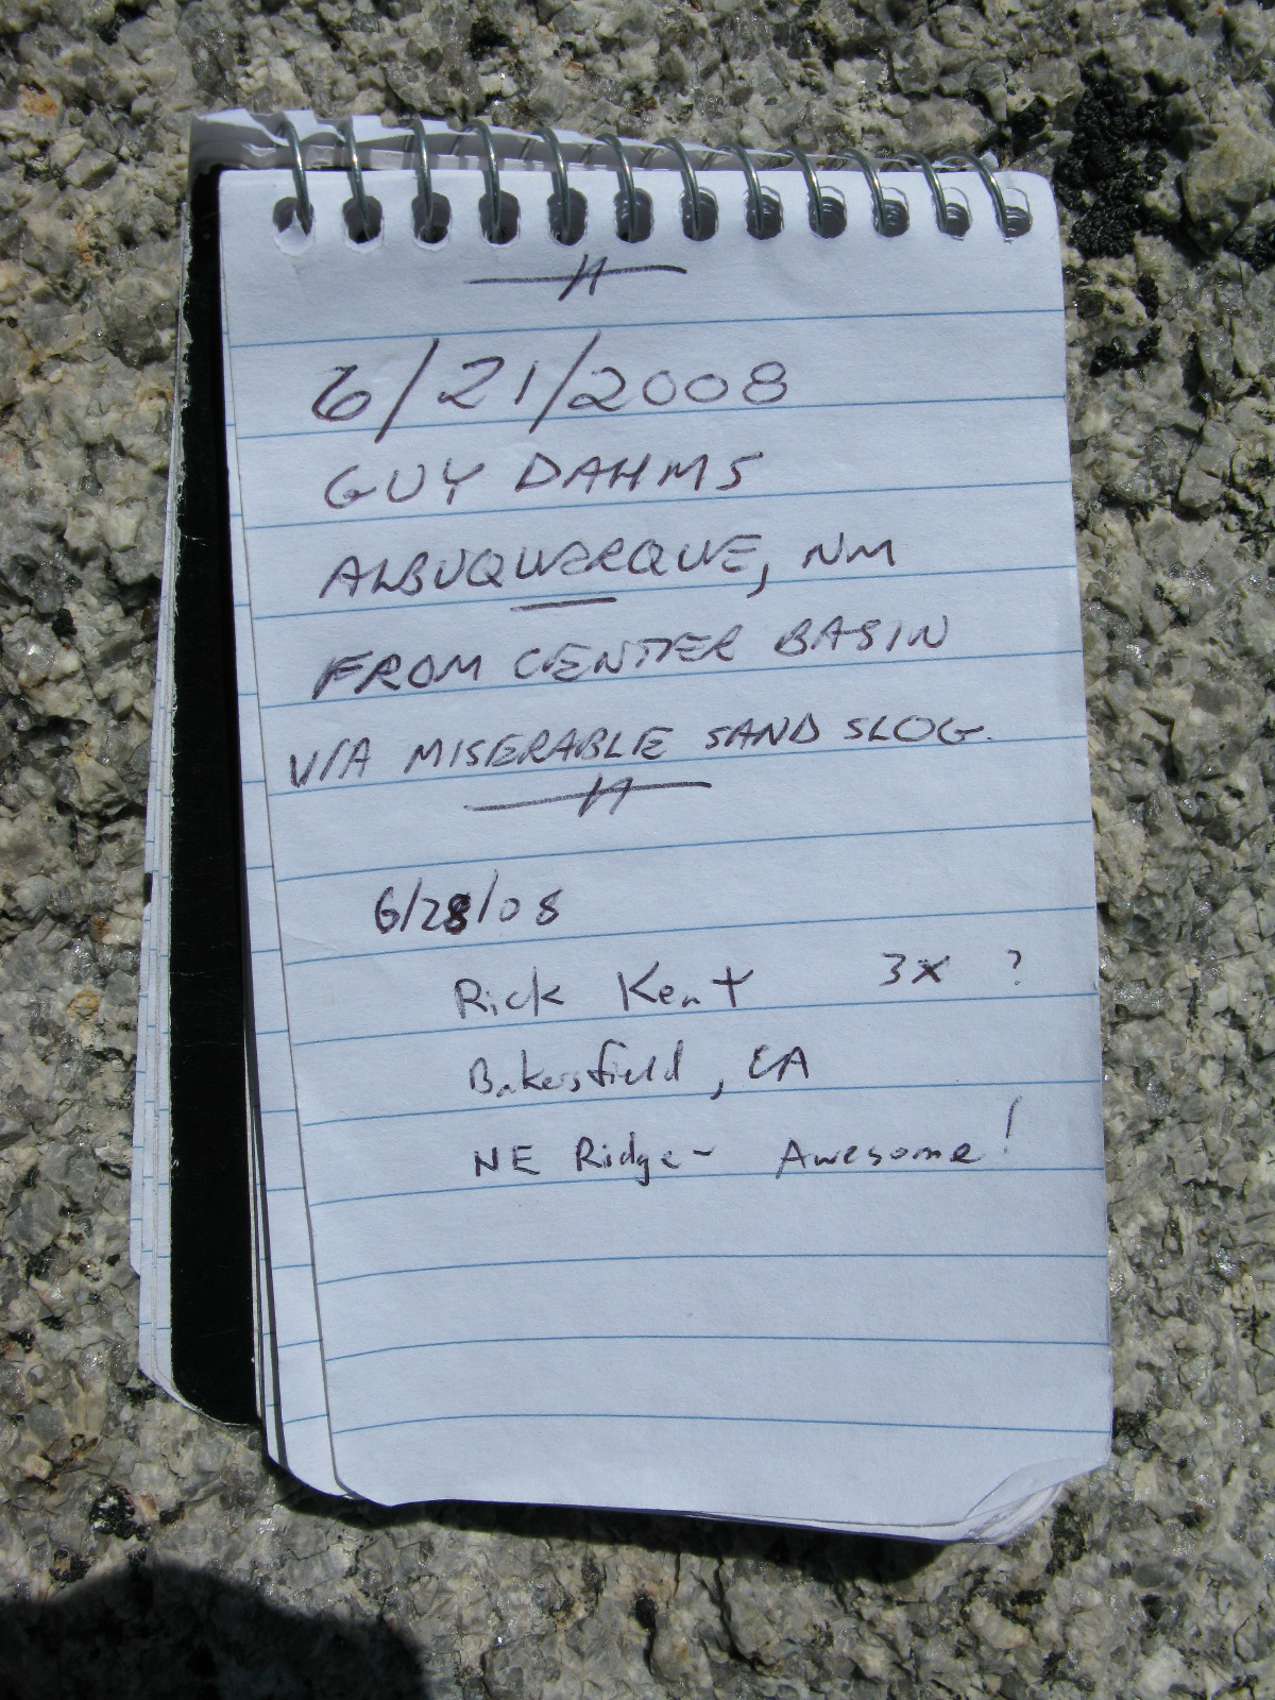 6/21/2008
GUY DAHMS
ALBUQUERQUE, NM
FROM CENTER BASIN
VIA MISERABLE SAND SLOG.
6/28/08
Rick Kent 3x ?
Bakersfield, CA
NE Ridge - Awesome!